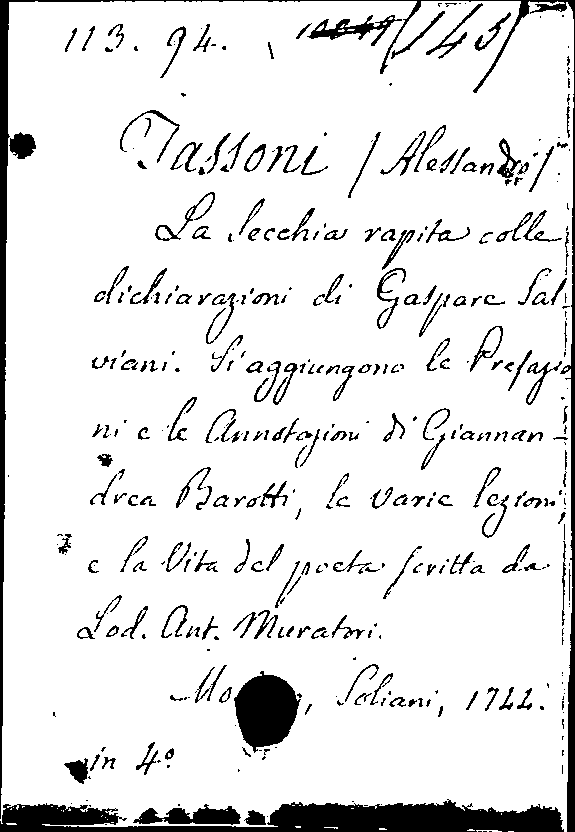 113. 94. /145/
Tassoni /Alessandro/
La Secchia rapita colle
dichiarazioni di Gaspare Sal-
viani. Si aggiungono le Prefazio
ni e le Annotazioni di Giannan-
drea Barotti, le varie lezioni,
e la Vita del poeta scritta da
Lod. Ant. Muratori.
Soliani, 1744.
in 4º